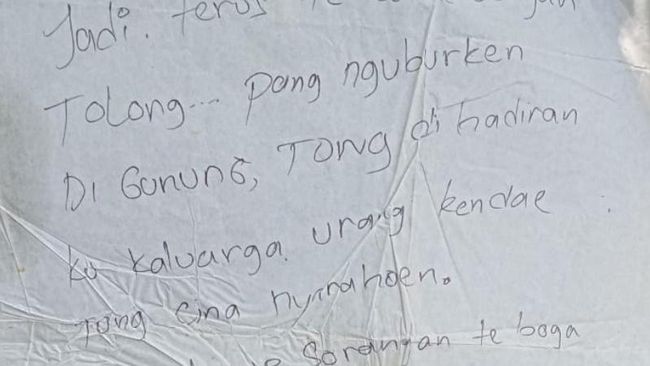 Jadi. terus
Tolong... pang nguburken
Di GUNUNG, TONG di hadiran
ku kaluarga. urang kendae
Tong cina nyarahoen.
Sorangan te boga